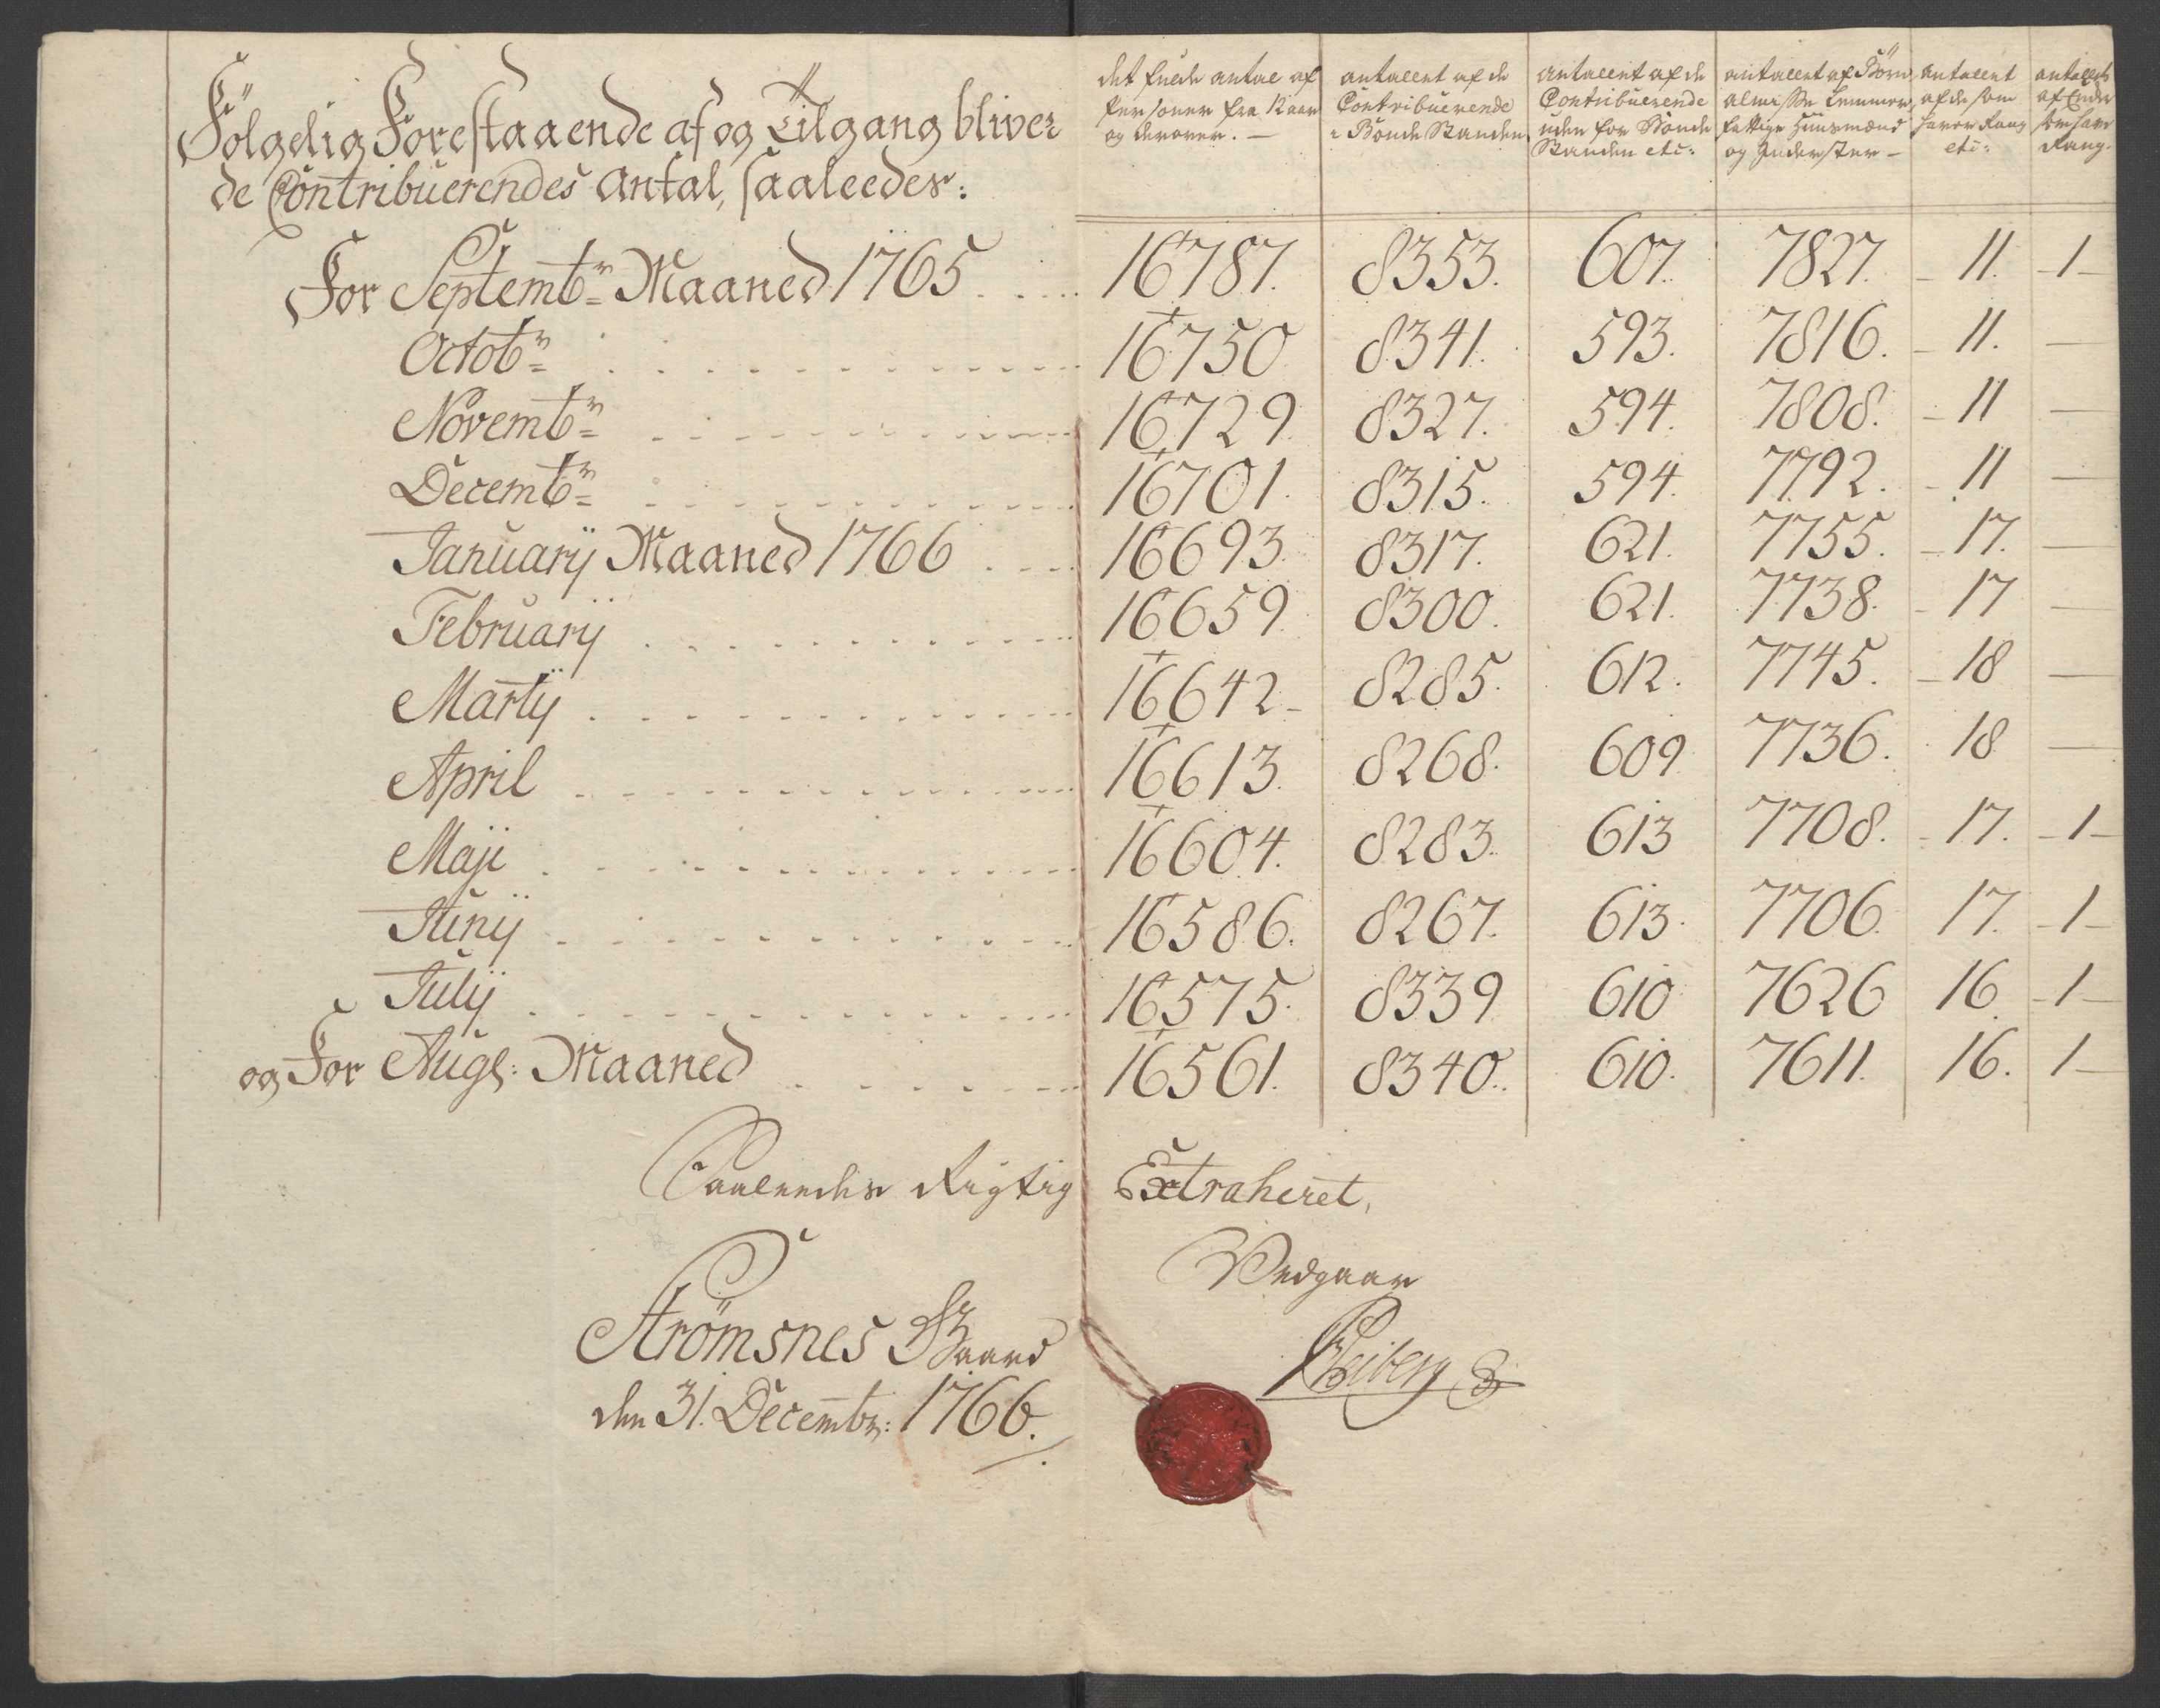 Fölgelig Forestaaende af og Tilgang bliver
de Contribuerendes Antal, saaleedes:
det fulde antal af Personer fra 12 aar og derover. —
antallent af de Contribuerende i Bonde Standen
antallent af de Contribuerende uden for Bonde Standen etc:
antallent af Börn almisse Lemmer, fattige Huusmænd og Inderster —
antallent af de som haver Rang etc:
antallent af Enker som haver Rang.
For Septembr Maaned 1765 . . . . 16787. 8353. 607. 7827. 11. 1
Octobr 16750 8341. 593. 7816. 11. —
Novembr 16729. 8327. 594. 7808. 11 —
Decembr 16701. 8315. 594. 7792. 11 —
Januarij Maaned 1766 16693. 8317. 621. 7755. 17. —
Februarij 16659. 8300. 621. 7738. 17 —
Martij 16642 8285. 612. 7745. 18 —
April 16613. 8268. 609 7736. 18 —
Maji 16604. 8283. 613 7708. 17. 1
Junij 16586. 8267. 613. 7706. 17. 1
Julij 16575. 8339 610 7626 16. 1
og For Aug: Maaned 16561. 8340. 610. 7611. 16. 1
Saaleedes Rigtig Extraheret,
Vedgaar
Strömsnes Gaard
den 31. Decembr: 1766.
Heiberg